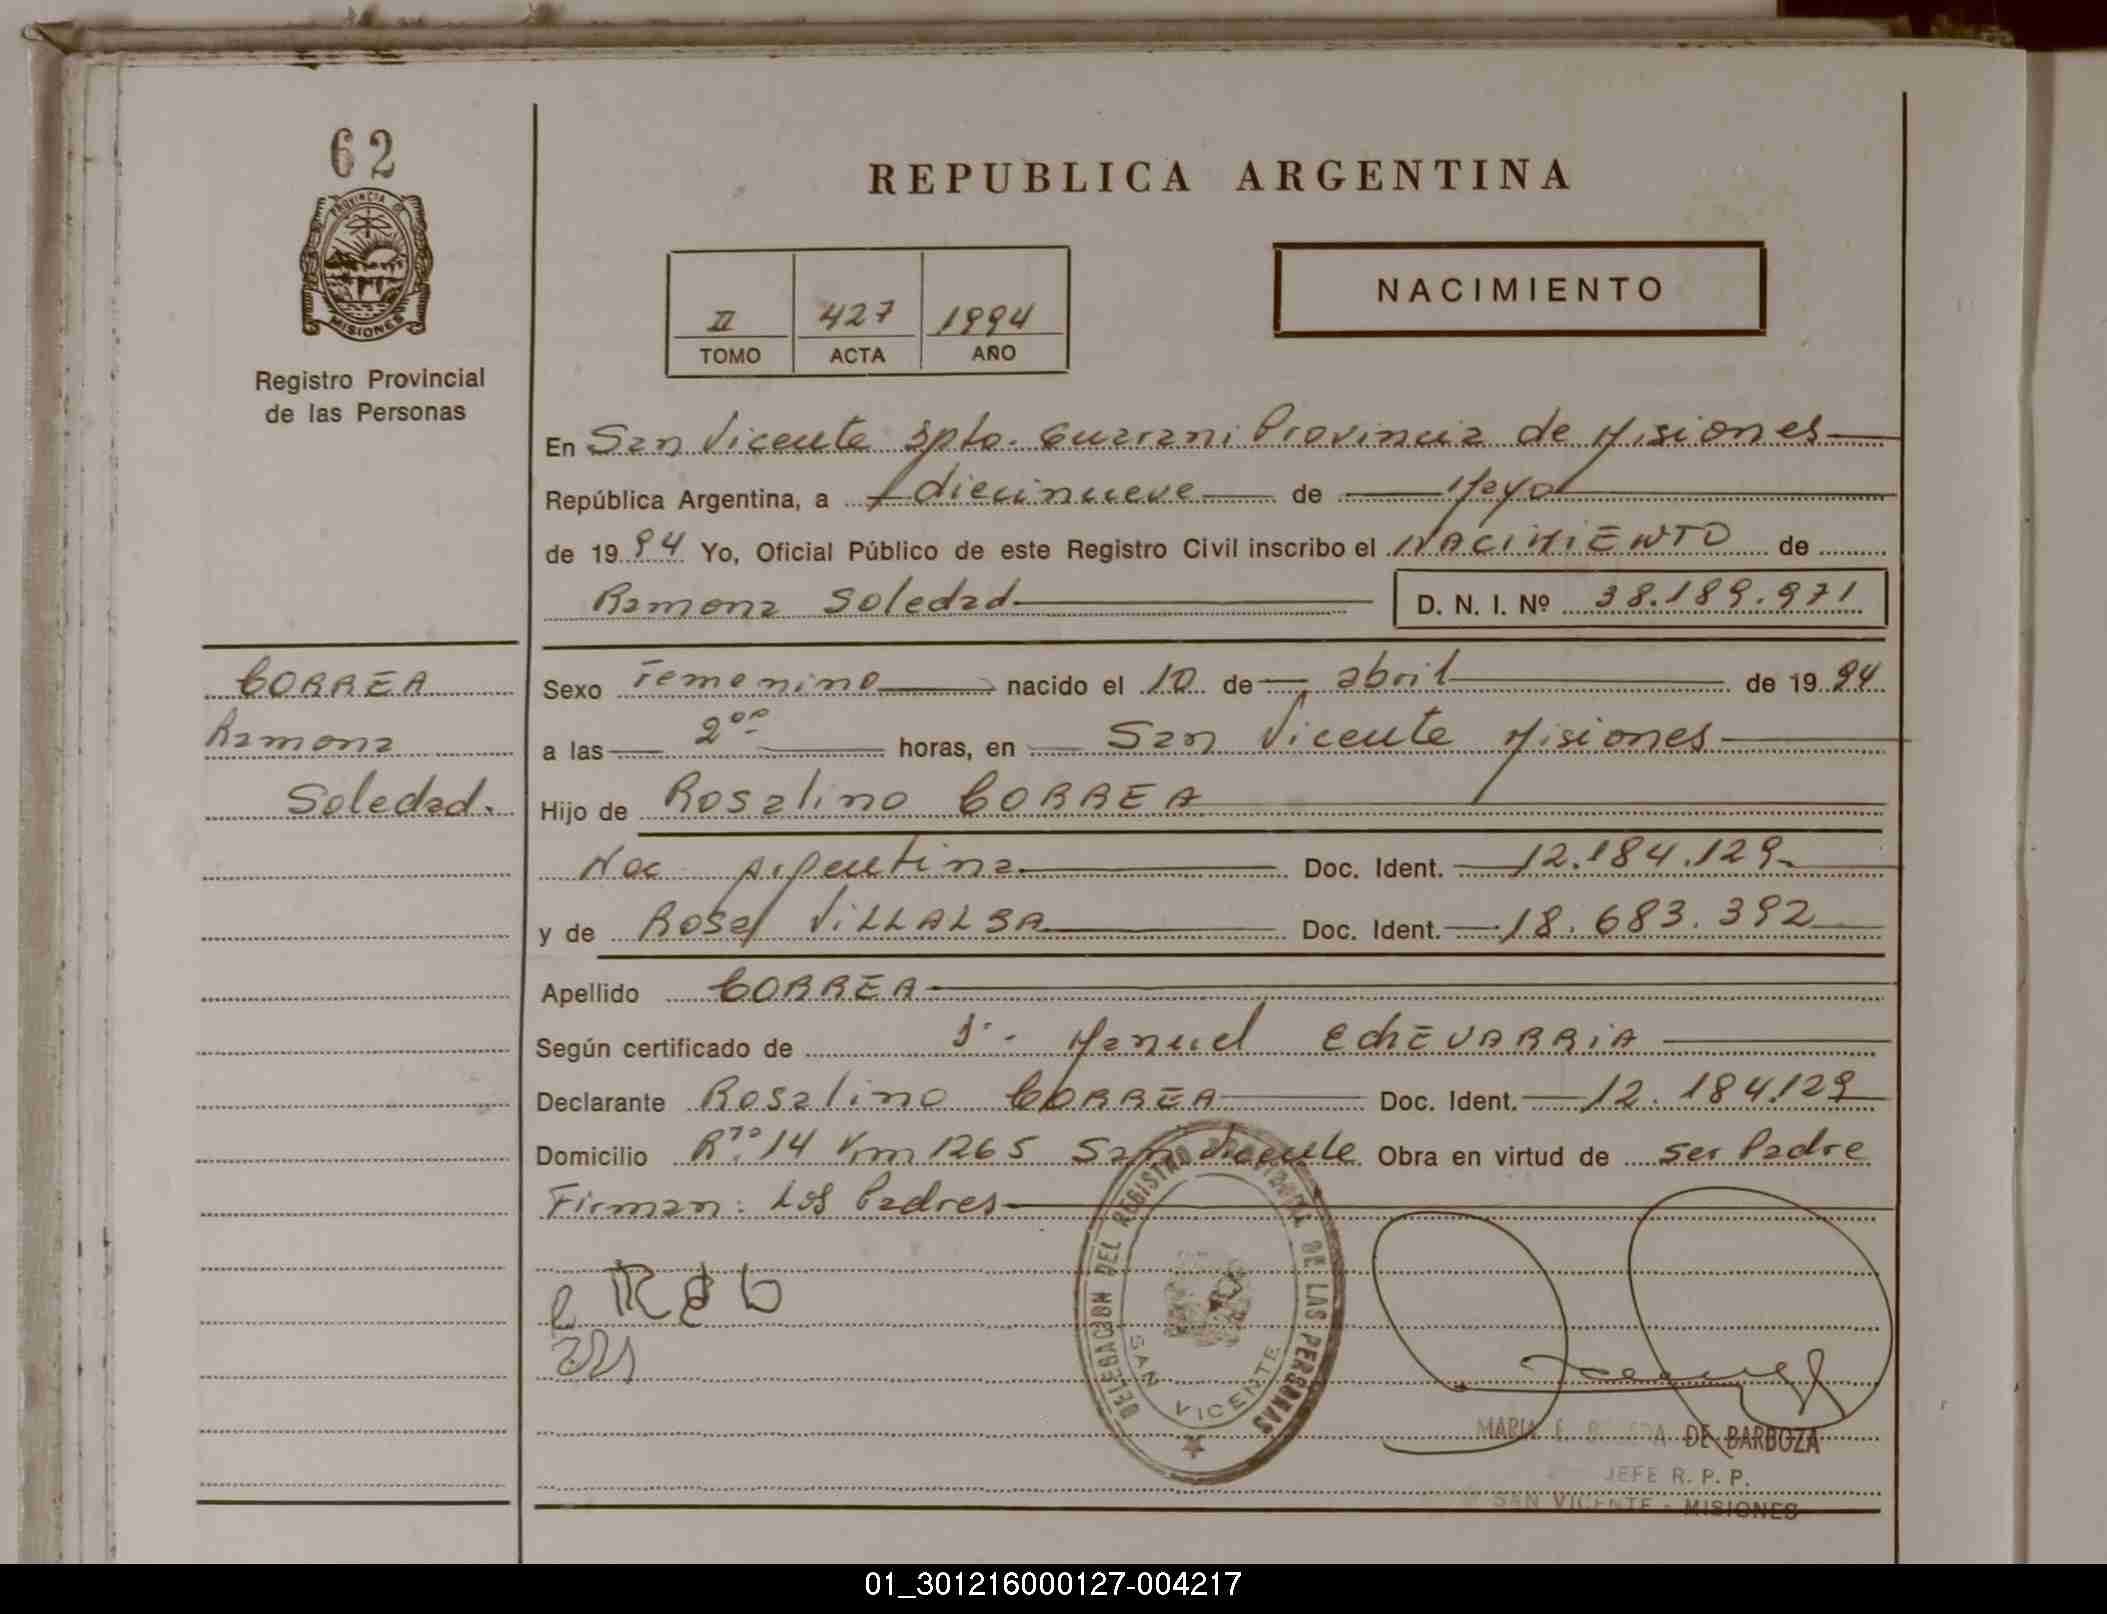 62
PROVINCIA DE
MISIONES
Registro Provincial
de las Personas
REPUBLICA ARGENTINA
II 427 1994
TOMO ACTA AÑO
NACIMIENTO
En San Vicente Dpto. Guarani Provincia de Misiones
República Argentina, a diecinueve de Mayo
de 1994 Yo, Oficial Público de este Registro Civil inscribo el NACIMIENTO de
Ramona Soledad D. N. I. Nº 38.189.971
CORREA
Ramona
Soledad.
Sexo Femenino nacido el 10 de abril de 1994
a las 2 horas, en San Vicente Misiones
Hijo de Rosalino CORREA
Nac Argentina Doc. Ident. 12.184.129
y de Rosa VILLALBA Doc. Ident. 18.683.392
Apellido CORREA
Según certificado de Manuel EchEVARRIA
Declarante Rosalino CORREA Doc. Ident. 12.184.129
Domicilio R 14 Km 1265 San Vicente Obra en virtud de ser Padre
Firman: Los Padres
DELEGACION DEL REGISTRO PROVINCIAL DE LAS PERSONAS
SAN VICENTE
MARIA E. DE BARBOZA
JEFE R. P. P.
SAN VICENTE - MISIONES
01_301216000127-004217